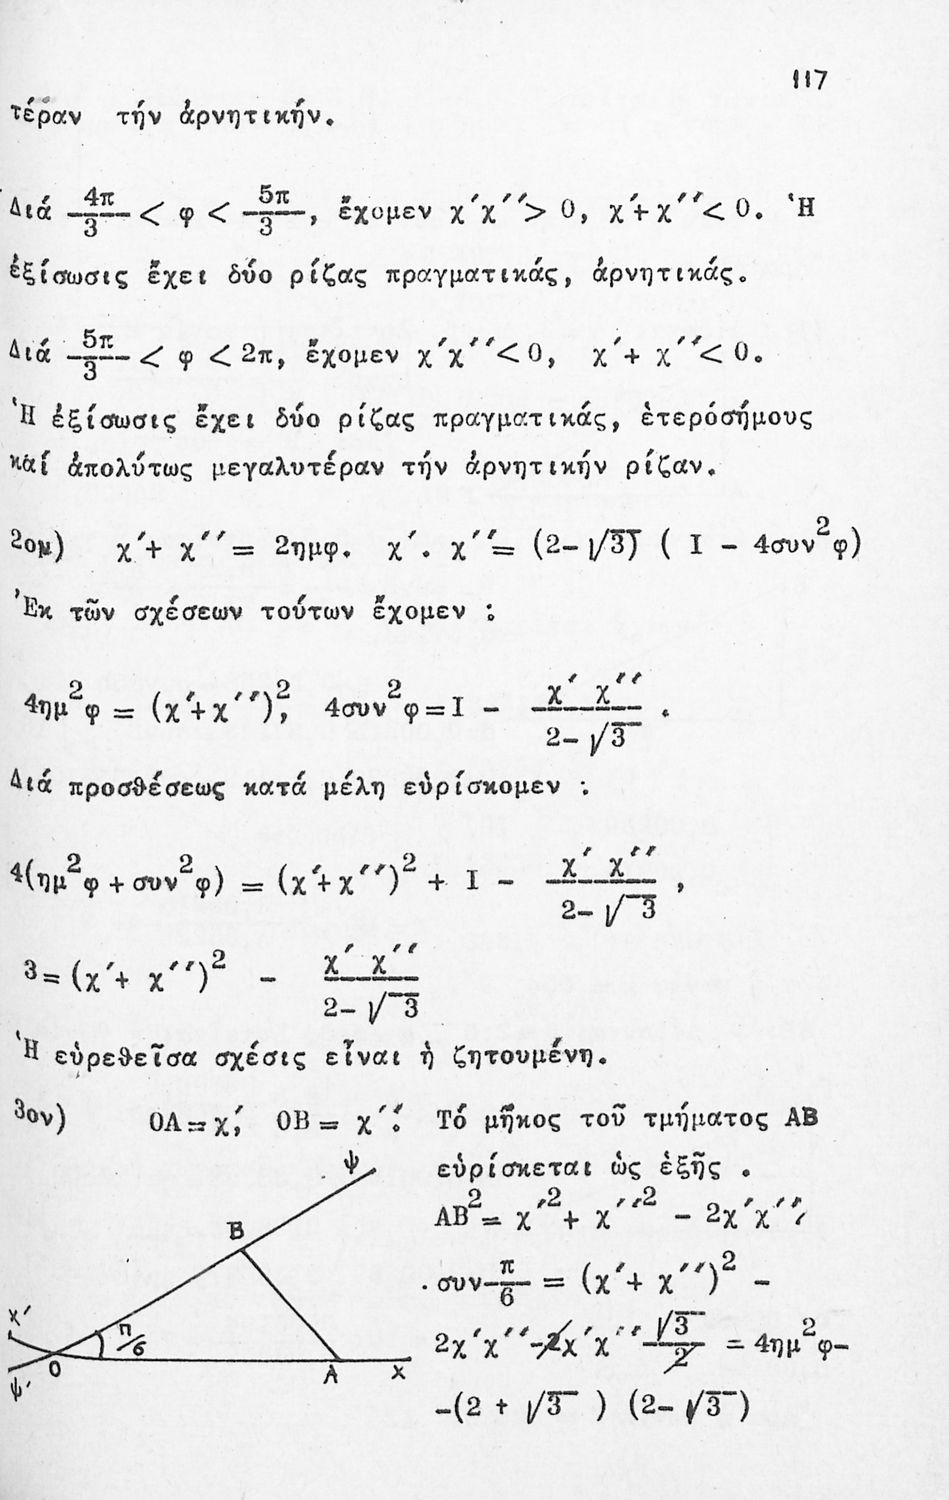 117
τέραν τήν ἀρνητικήν.
Διά 4π/3 < φ < 5π/3, ἔχομεν χ′χ′′> 0, χ′+χ′′< 0. Ἡ
ἐξίσωσις ἔχει δύο ρίζας πραγματικάς, ἀρνητικάς.
Διά 5π/3 < φ < 2π, ἔχομεν χ′χ′′<0, χ′+ χ′′< 0.
Ἡ ἐξίσωσις ἔχει δύο ρίζας πραγματικάς, ἑτεροσήμους
καί ἀπολύτως μεγαλυτέραν τήν ἀρνητικήν ρίζαν.
2ον) χ′+ χ′′= 2ημφ. χ′. χ′′= (2-√3) ( I - 4συν²φ)
Ἐκ τῶν σχέσεων τούτων ἔχομεν :
4ημ²φ = (χ′+χ′′)², 4συν²φ=I - χ′ χ′′/2-√3 .
Διά προσθέσεως κατά μέλη εὑρίσκομεν :
4(ημ²φ + συν²φ) = (χ′+χ′′)² + I - χ′ χ′′/2-√3 ,
3=(χ′+ χ′′)² - χ′ χ′′/2-√3
Ἡ εὑρεθεῖσα σχέσις εἶναι ἡ ζητουμένη.
3ον) ΟΑ=χ′, ΟΒ= χ′′. Τό μῆκος τοῦ τμήματος ΑΒ
εὑρίσκεται ὡς ἑξῆς .
ΑΒ²= χ′²+ χ′′² - 2χ′χ′′.
.συν π/6 = (χ′+ χ′′)² -
2χ′χ′′-2χ′χ′′ √3/2 = 4ημ²φ-
-(2 + √3 ) (2-√3)
ψ
Β
χ′
π/6
Ο
Α
χ
ψ′